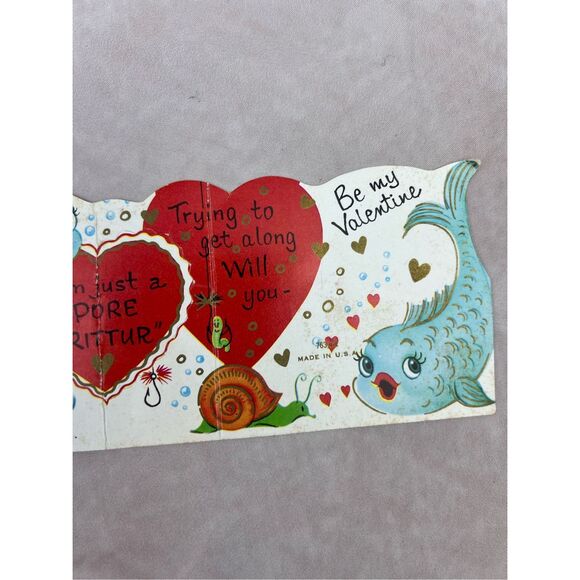 just a
PORE
RITTUR"
Trying to
get along
Will
you-
Be my
Valentine
MADE IN U.S.A.